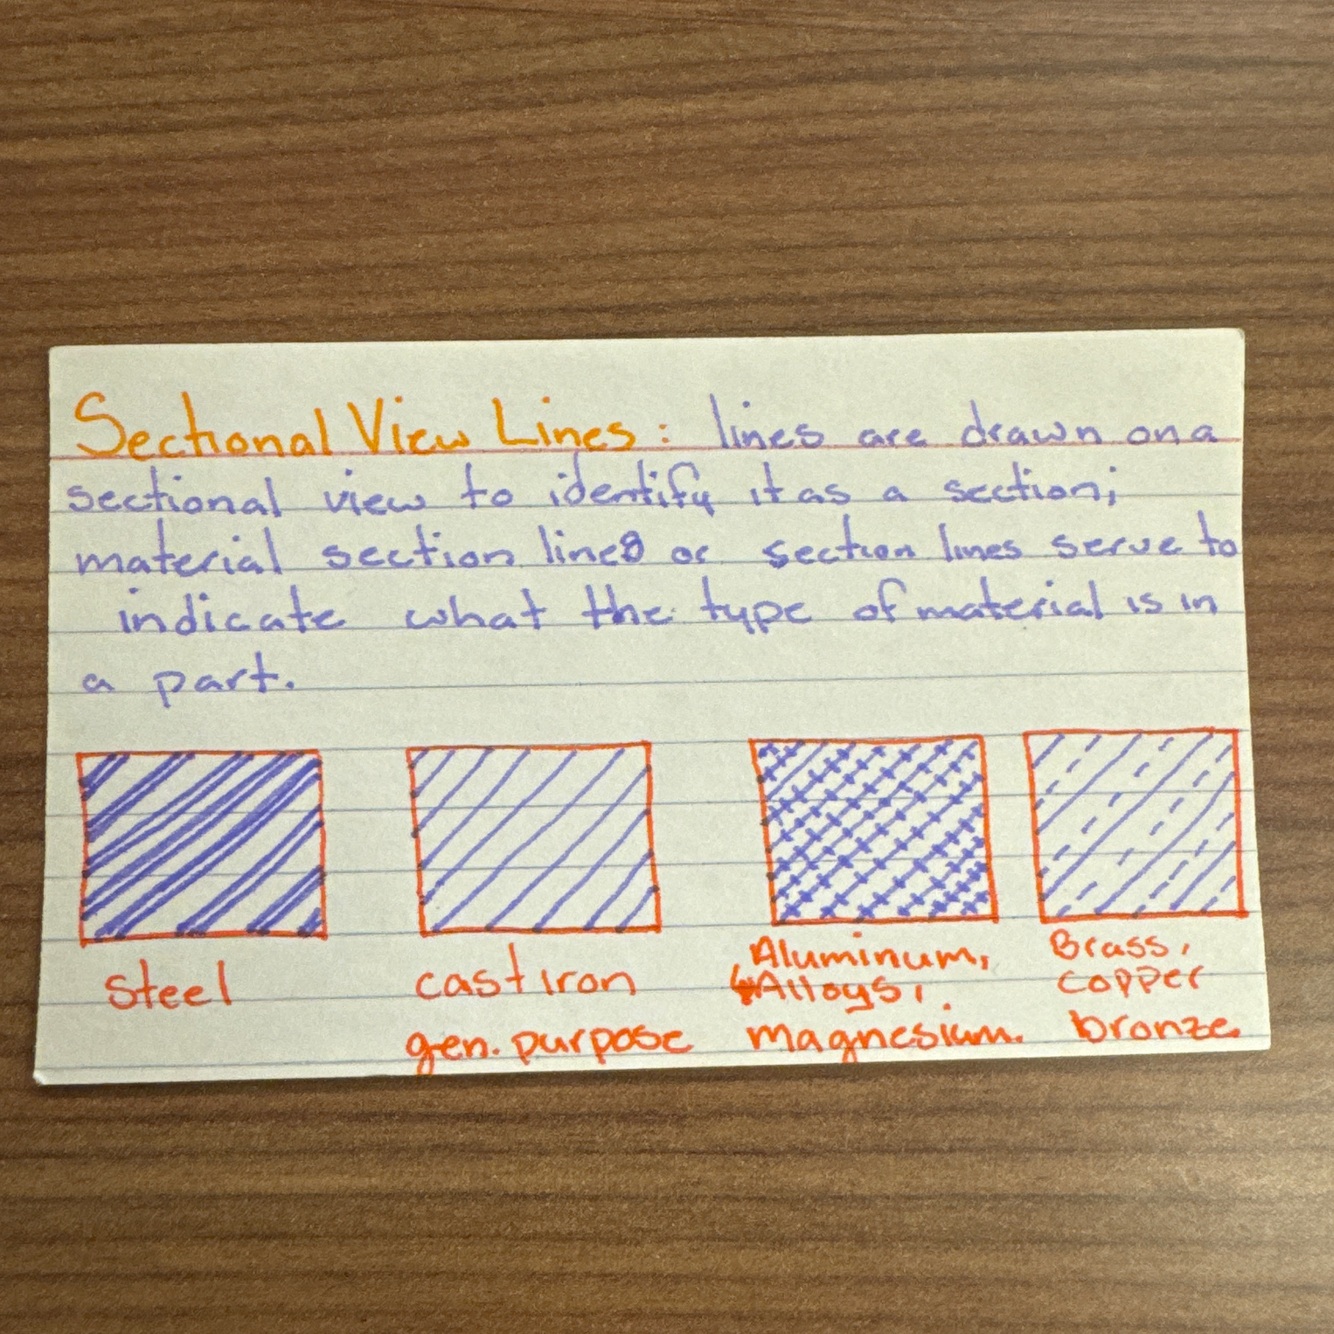 Sectional View Lines: lines are drawn on a
sectional view to identify it as a section;
material section lines or section lines serve to
indicate what the type of material is in
a part.
steel
cast iron
gen. purpose
Aluminum,
Alloys,
magnesium.
Brass,
copper
bronze.